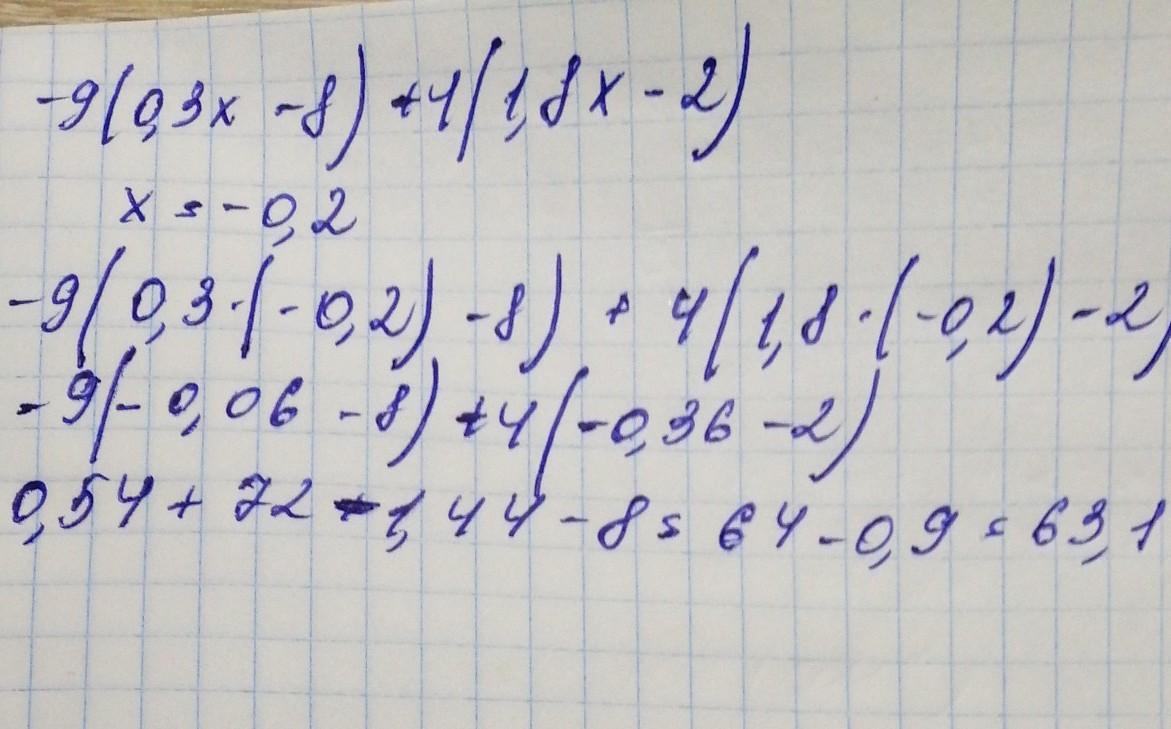 -9(0,3x -8) +4(1,8x-2)
x = -0,2
-9(0,3·(-0,2)-8) + 4(1,8·(-0,2)-2)
-9(-0,06 -8) +4(-0,36 -2)
0,54 + 72 -1,44 -8 = 64 -0,9 = 63,1